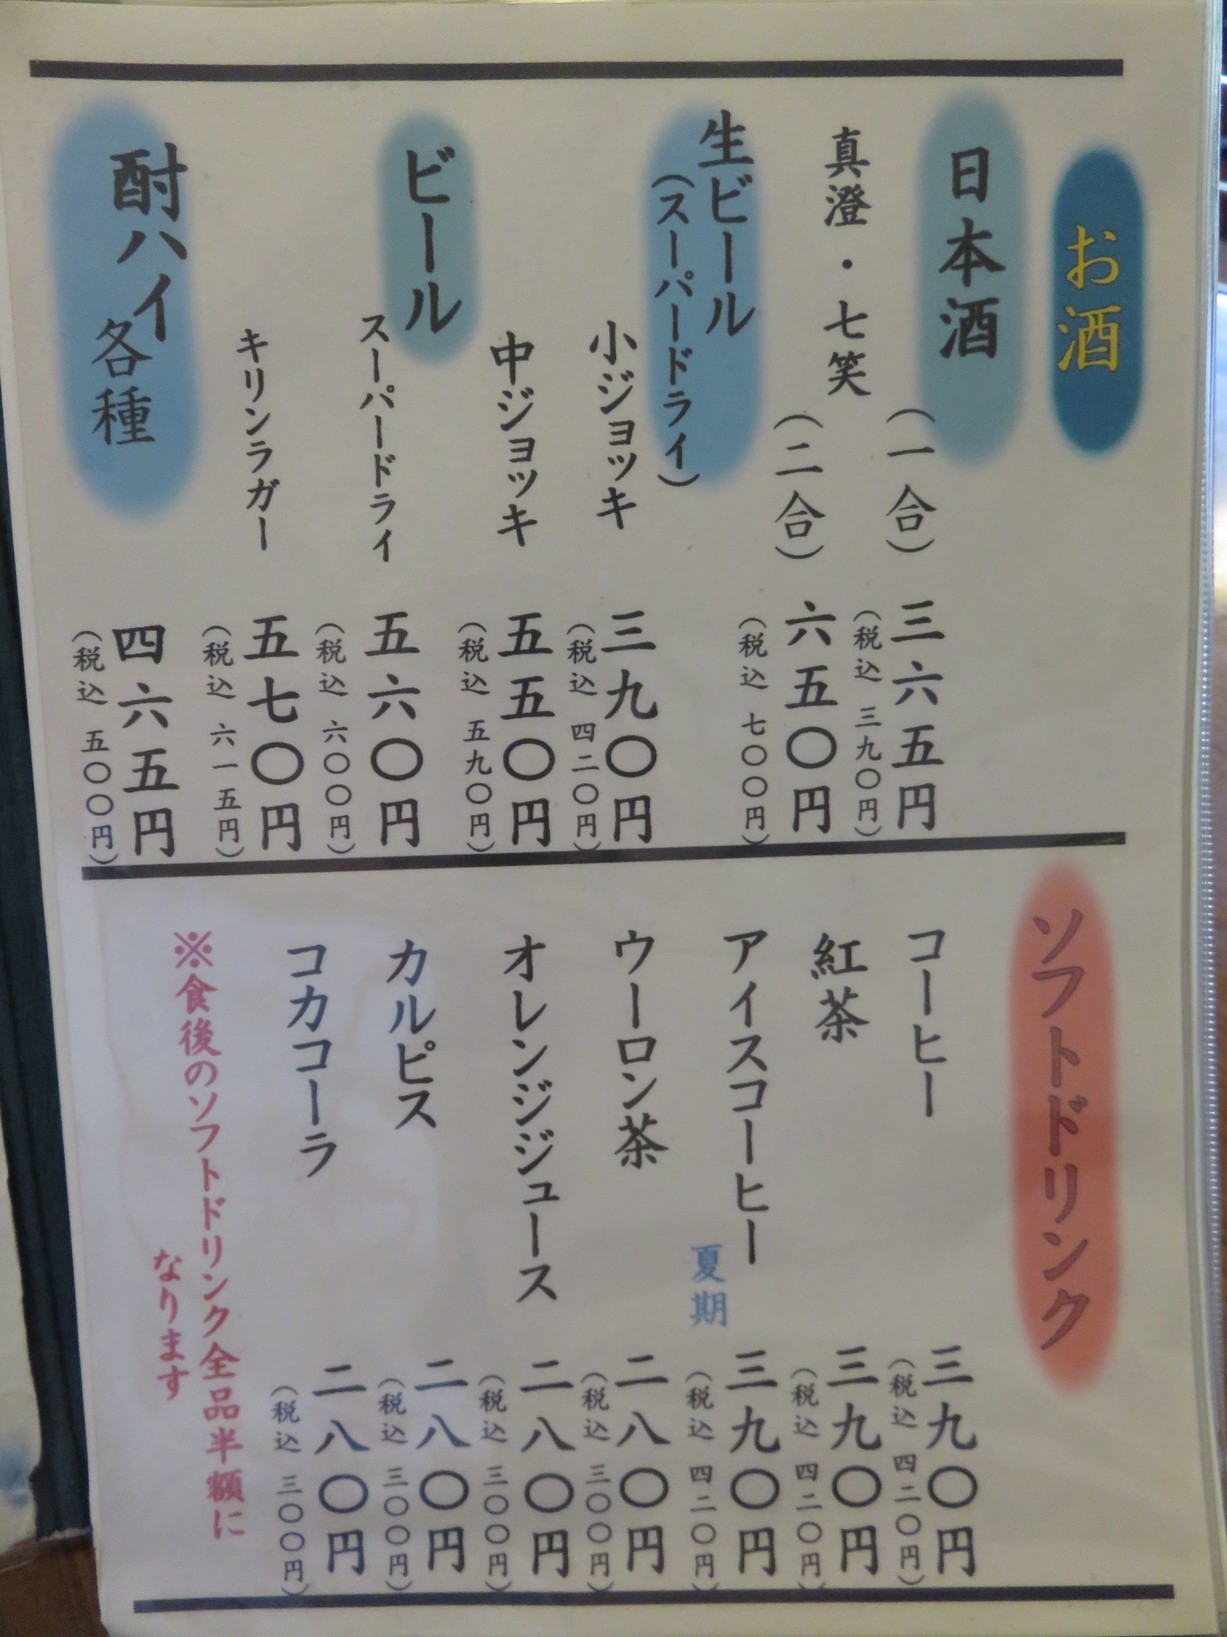 お酒
日本酒
(一合) 三六五円
(税込 三九〇円)
真澄・七笑
(二合) 六五〇円
(税込 七〇〇円)
生ビール
(スーパードライ)
小ジョッキ 三九〇円
(税込 四二〇円)
中ジョッキ 五五〇円
(税込 五九〇円)
ビール
スーパードライ 五六〇円
(税込 六〇〇円)
キリンラガー 五七〇円
(税込 六一五円)
酎ハイ
各種 四六五円
(税込 五〇〇円)
ソフトドリンク
コーヒー 三九〇円
(税込 四二〇円)
紅茶 三九〇円
(税込 四二〇円)
アイスコーヒー 三九〇円
夏期 (税込 四二〇円)
ウーロン茶 二八〇円
(税込 三〇〇円)
オレンジジュース 二八〇円
(税込 三〇〇円)
カルピス 二八〇円
(税込 三〇〇円)
コカコーラ 二八〇円
(税込 三〇〇円)
※食後のソフトドリンク全品半額に
なります